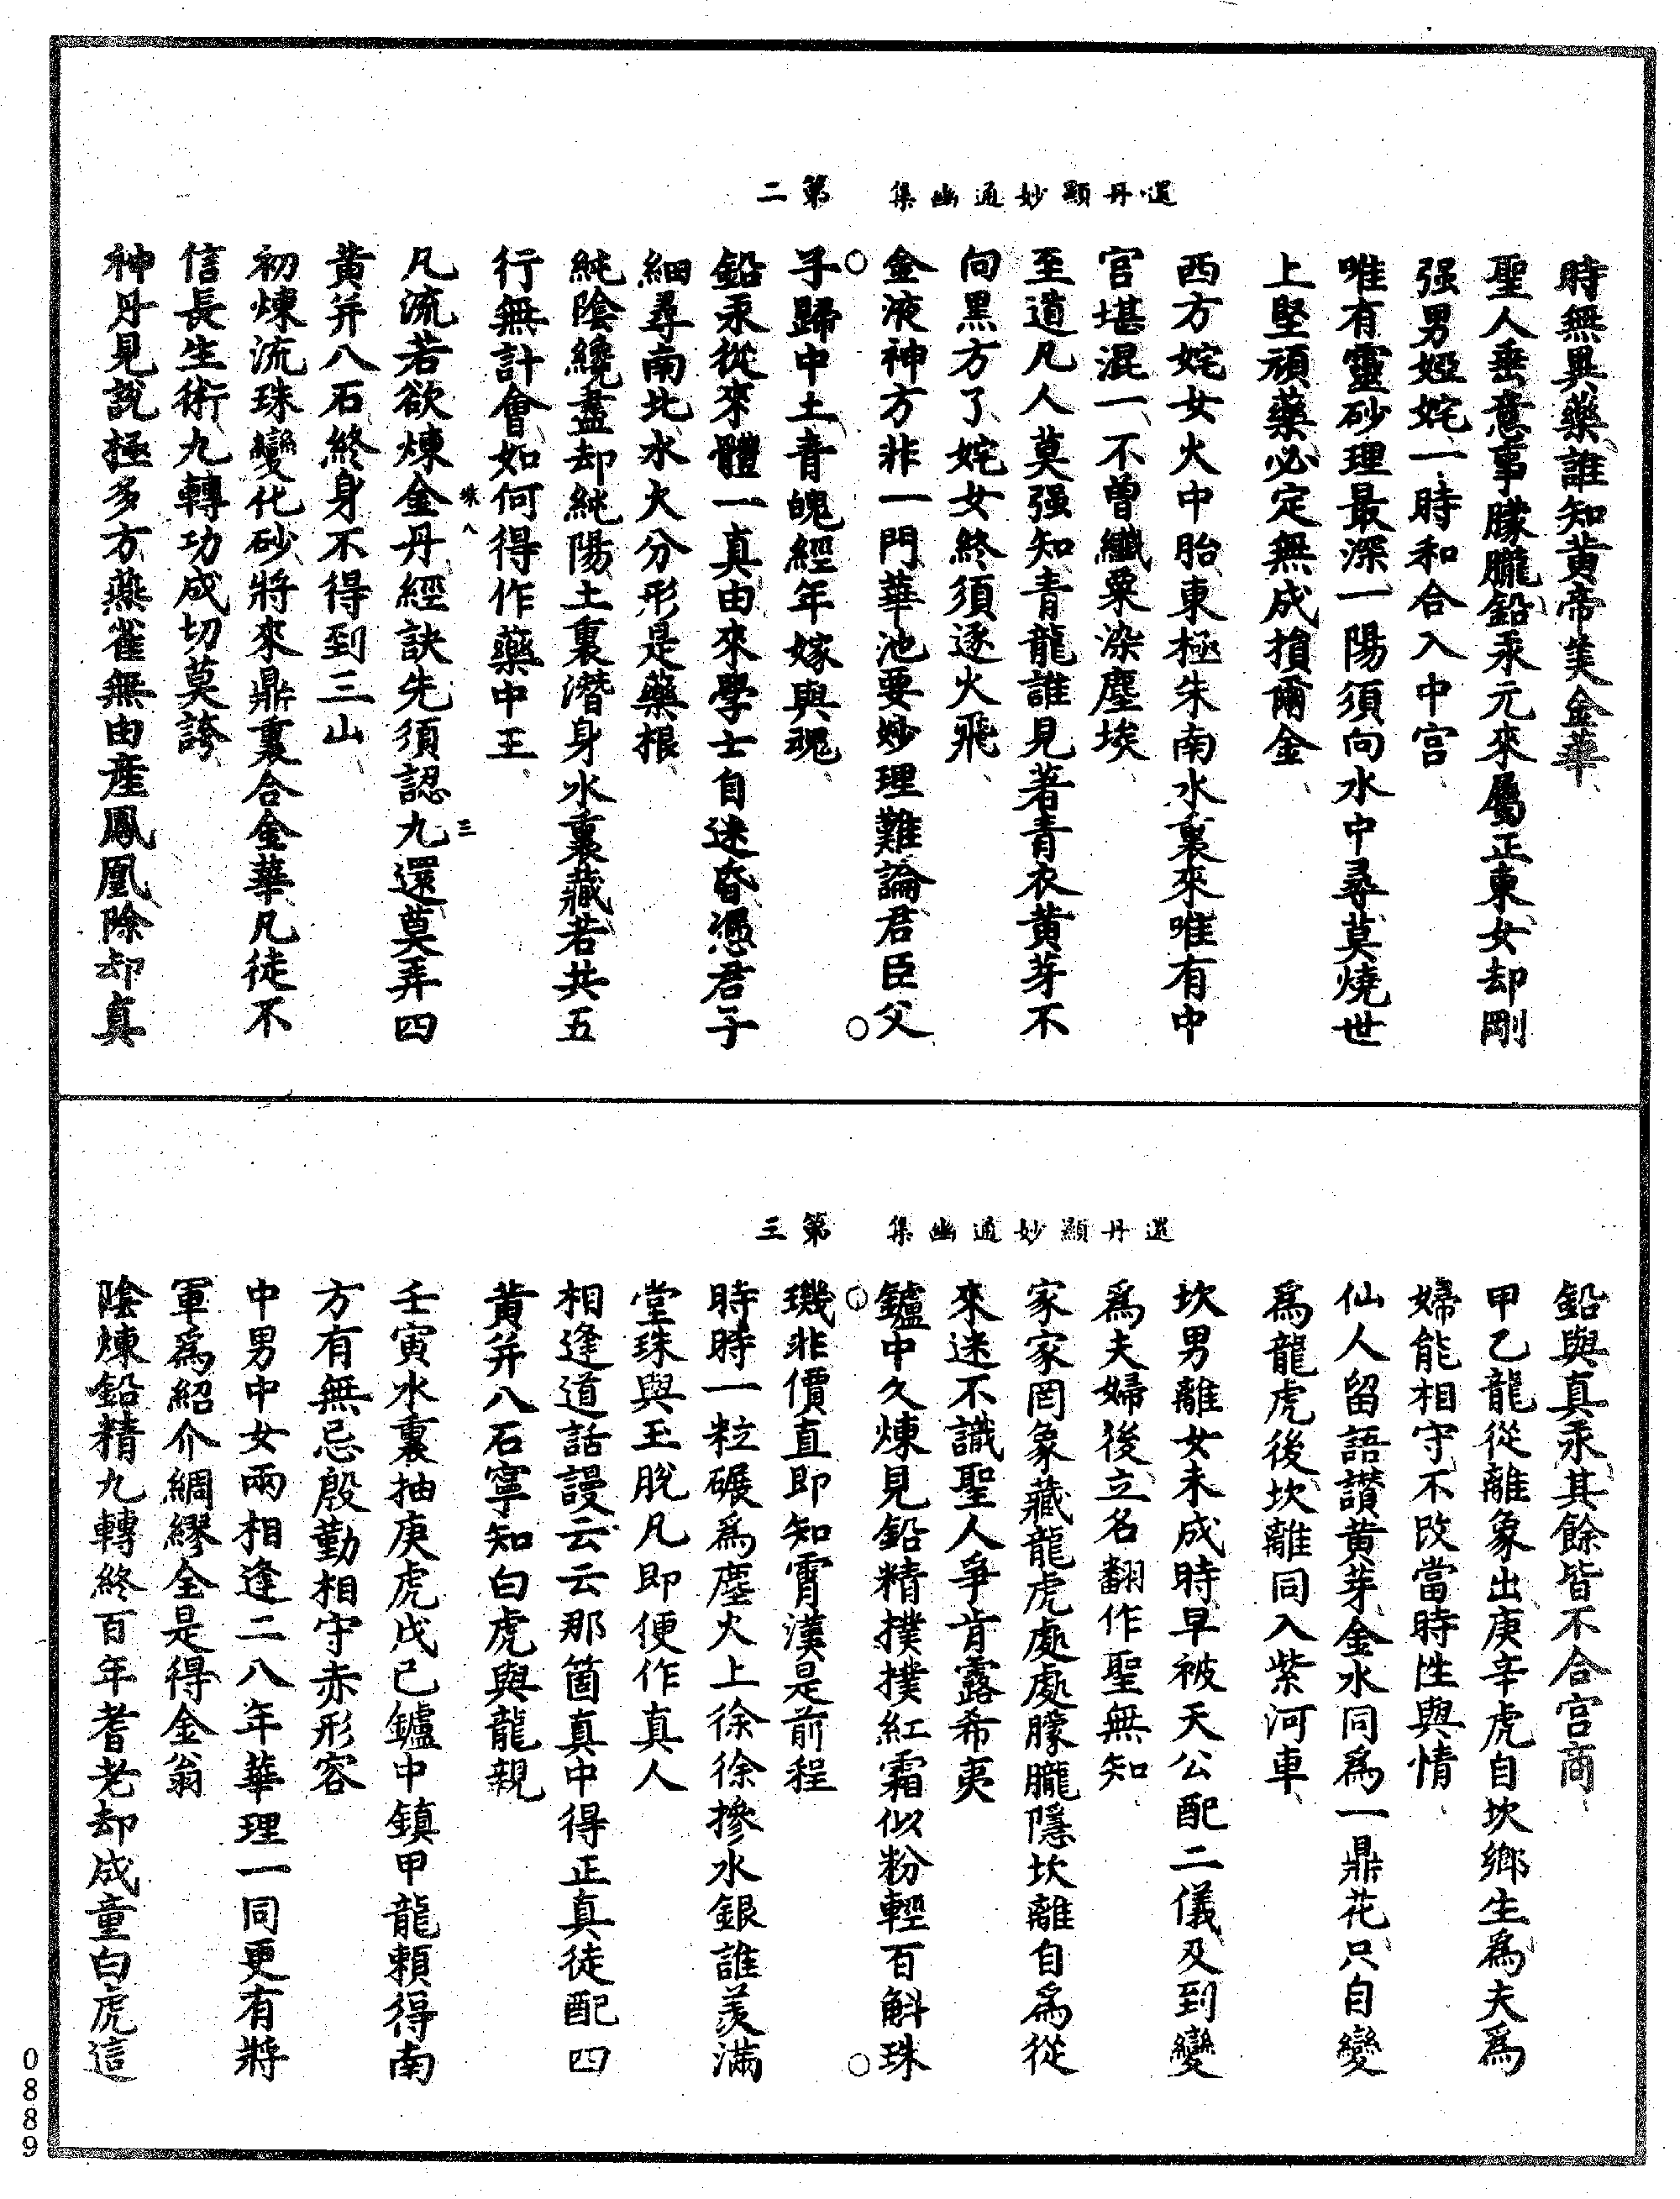 還丹顯妙通幽集 第二
時無異藥誰知黃帝美金華
聖人垂意事朦朧鉛汞元來屬正東女却剛
强男婭姹一時和合入中宮
唯有靈砂理最深一陽須向水中尋莫燒世
上堅頑藥必定無成損爾金
西方姹女火中胎東極朱南水裏來唯有中
宮堪混一不曾纖粟染塵埃
至道凡人莫强知青龍誰見著青衣黃芽不
向黑方了姹女終須逐火飛
金液神方非一門華池要妙理難論君臣父
子歸中土青魄經年嫁與魂
鉛汞從來體一真由來學士自迷昏憑君子
細尋南北水火分形是藥根
純陰纔盡却純陽土裏潛身水裏藏若共五
行無計會如何得作藥中王
珠八 三
凡流若欲煉金丹經訣先須認九還莫弄四
黃并八石終身不得到三山
初煉流珠變化砂將來鼎裏合金華凡徒不
信長生術九轉功成切莫誇
神丹見說極多方燕雀無由產鳳凰除却真
還丹顯妙通幽集 第三
鉛與真汞其餘皆不合宮商
甲乙龍從離象出庚辛虎自坎鄉生為夫為
婦能相守不改當時性與情
仙人留語讚黃芽金水同為一鼎花只自變
為龍虎後坎離同入紫河車
坎男離女未成時早被天公配二儀及到變
為夫婦後立名翻作聖無知
家家罔象藏龍虎處處朦朧隱坎離自為從
來迷不識聖人爭肯露希夷
鑪中久煉見鉛精撲撲紅霜似粉輕百斛珠
璣非價直即知霄漢是前程
時時一粒碾為塵火上徐徐摻水銀誰羨滿
堂珠與玉脫凡即便作真人
相逢道話謾云云那箇真中得正真徒配四
黃并八石寧知白虎與龍親
壬寅水裏抽庚虎戊己鑪中鎮甲龍賴得南
方有無忌殷勤相守赤形容
中男中女兩相逢二八年華理一同更有將
軍為紹介綢繆全是得金翁
陰煉鉛精九轉終百年耆老却成童白虎這
0889